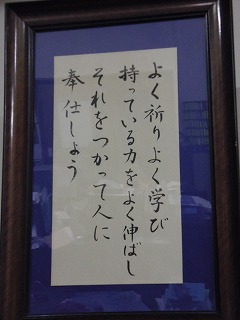 よく祈りよく学び
持っている力をよく伸ばし
それをつかって人に
奉仕しよう